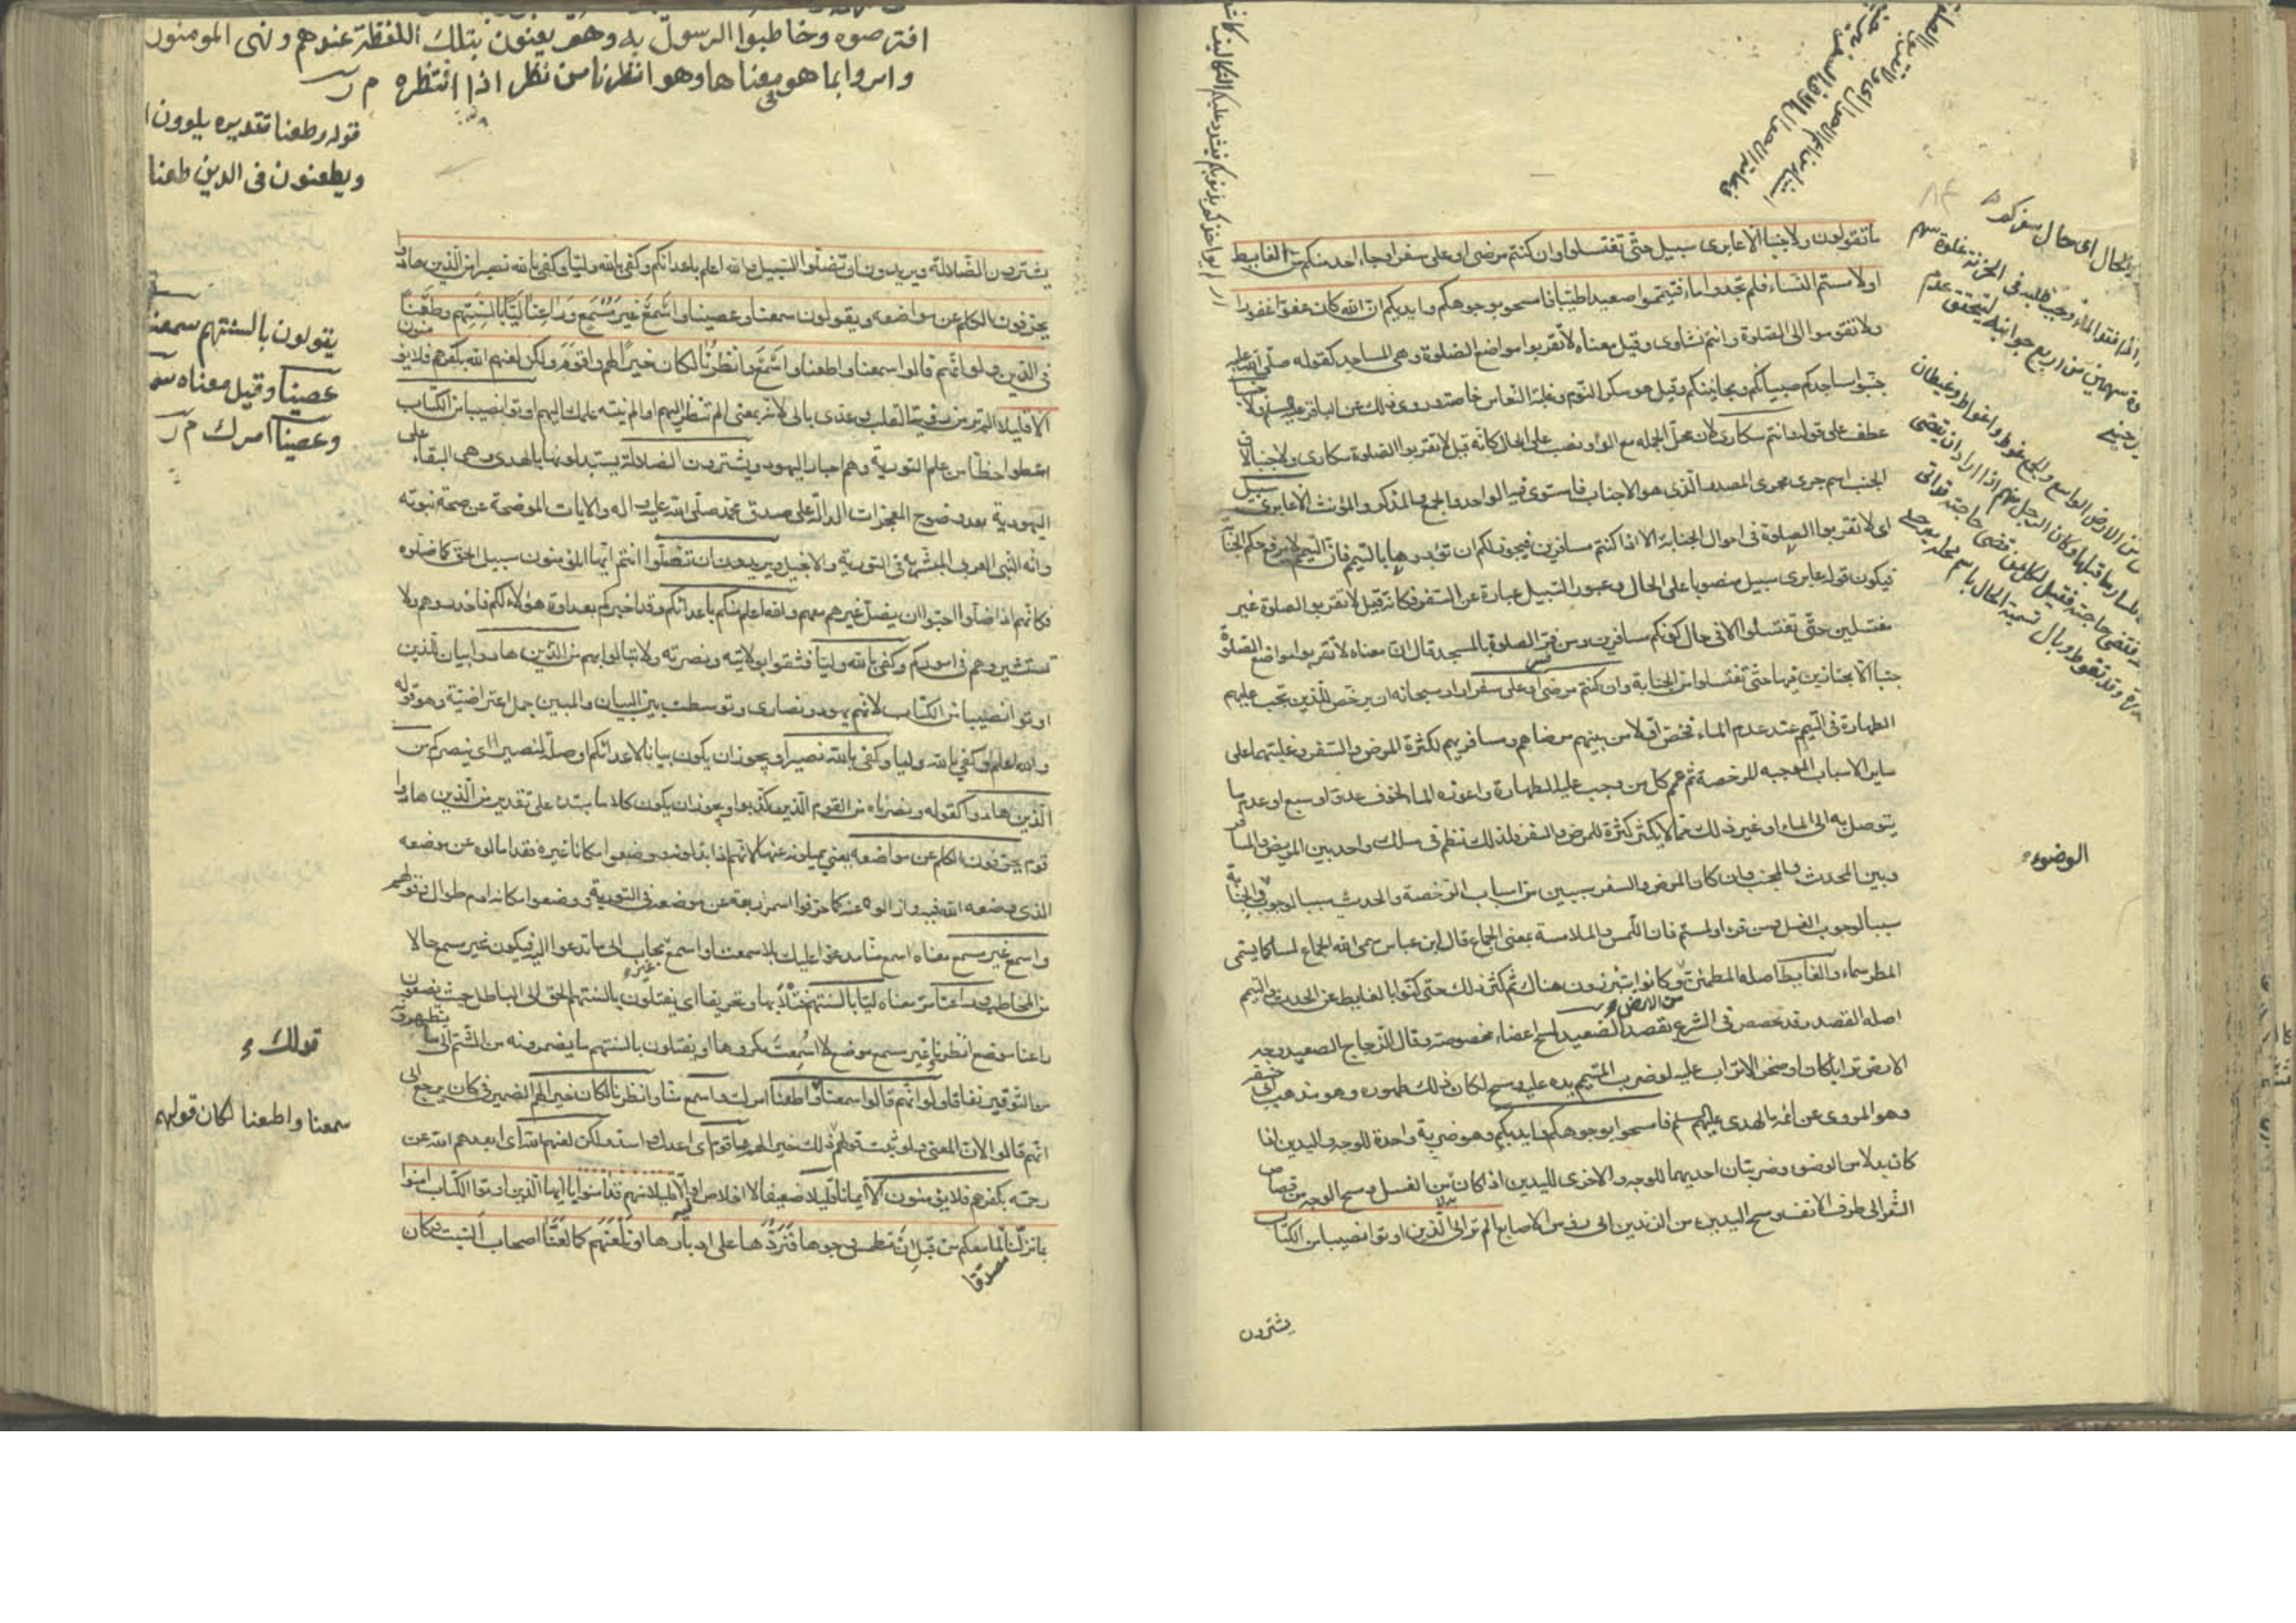 ما تقولون ولا جنبا الا عابرى سبيل حتّى تغتسلوا وان كنتم مرضى او على سفر او جاء احد منكم من الغايط
اولا مستم النساء فلم تجدوا ماء فتيمموا صعيدا طيّبا فامسحوا بوجوهكم وايديكم ان الله كان عفوّا غفورا
ولا تقوموا الى الصّلوة وانتم نشاوى وقيل معناه لا تقربوا مواضع الصّلوة وهى المساجد كقوله صلّى الله عليه
جنّبوا مساجدكم صبيانكم ومجانينكم وقيل هو سكر النّوم وغلبة النّعاس خاصّة وروى ذلك عن الباقر ولا جنبا
عطف على قوله وانتم سكارى لان محلّ الجمله مع الواو نصب على الحال كانّه قيل لا تقربوا الصّلوة سكارى ولا جنبا الا
الجنب اسم جرى مجرى المصدر الّذى هو الاجناب فاستوى فيه الواحد والجمع والمذكر والمؤنث الا عابرى سبيل
اى لا تقربوا الصلوة فى احوال الجنابة الا اذا كنتم مسافرين فيجوز لكم ان تؤدوها بالتيمّم فانّ التيمم لا يرفع حكم الجنابة
فيكون قوله عابرى سبيل منصوبا على الحال وعبور السّبيل عبارة عن السّفر فكانّه قيل لا تقربوا الصلوة غير
مغتسلين حتّى تغتسلوا الا فى حال كونكم مسافرين ومن فسّر الصلوة بالمسجد قال انّ معناه لا تقربوا مواضع الصّلوة
جنبا الّا مجتازين فيها حتّى تغتسلوا من الجنابة وان كنتم مرضى او على سفر اراد سبحانه ان يرخّص للّذين تجب عليهم
الطهارة فى التّيمم عند عدم الماء فخصّ اوّلا من بينهم مرضاهم ومسافريهم لكثرة المرض والسّفر وغلبتهما على
ساير الاسباب الموجبه للرخصة ثم عمّ كل من وجب عليه الطهارة واعوزه الماء لخوف عدوّ او سبع او عدم ما
يتوصل به الى الماء او غير ذلك ممّا لا يكثر كثرة المرض والسّفر ولذلك نظم فى سلك واحد بين المريض والمسافر
وبين المحدث والمجنب وان كان المرض والسفر سببين من اسباب الرّخصة والحدث سببا لوجوب الوضوء والجنابة
سببا لوجوب الغسل ومن قرء او لمستم فان اللّمس والملامسة بمعنى الجماع قال ابن عباس سمى الله الجماع لمسا كما يسمّى
المطر سماء والغايط اصله المطمئن من الارض وكانوا يتبرّزون هناك ثم كثر ذلك حتّى كنّوا بالغايط عن الحدث والتيمم
اصله القصد وقد تخصّص فى الشرع بقصد الصّعيد لمسح اعضاء مخصوصة وقال الزّجاج الصعيد وجه
الارض ترابا كان او صخرا لا تراب عليه لو ضرب المتيمم يده عليه ومسح لكان ذلك طهوره وهو مذهب ابى حنيفة
وهو المروى عن ائمه الهدى عليهم السلم فامسحوا بوجوهكم وايديكم وهو ضربة واحدة للوجه واليدين اذا
كان بدلا من الوضوء وضربتان احديهما للوجه والاخرى لليدين اذا كان بدلا من الغسل ومسح الوجه من قصاص
الشّعر الى طرف الانف ومسح اليدين من الزندين الى رؤس الاصابع الم تر الى الّذين اوتوا نصيبا من الكتاب
يشترون
الوضوء
افترصوه وخاطبوا الرسول به وهم يعنون بتلك اللفظة عندهم ونهى المومنون
وامروا بما هو بمعناها وهو انظرنا من نظر اذا انتظره م ر
قوله وطعنا تقديره يلوون
ويطعنون فى الدين طعنا
يقولون بالسنتهم سمعنا
عصينا وقيل معناه سمعنا
وعصينا امرك م ر
قولك
سمعنا واطعنا لكان قولهم
يشترون الضّلالة ويريدون ان تضلّوا السّبيل والله اعلم باعدائكم وكفى بالله وليّا وكفى بالله نصيرا من الّذين هادوا
يحرّفون الكلم عن مواضعه ويقولون سمعنا وعصينا واسمع غير مسمع وراعنا ليّا بالسنتهم وطعنا
فى الدّين ولو انّهم قالوا سمعنا واطعنا واسمع وانظرنا لكان خيرا لهم واقوم ولكن لعنهم الله بكفرهم فلا يؤمنون
الا قليلا الم تر من رؤية القلب وعدى بالى لانه بمعنى الم تنظر اليهم او الم ينته علمك اليهم اوتوا نصيبا من الكتاب
اعطوا حظّا من علم التورية وهم احبار اليهود ويشترون الضلالة يستبدلونها بالهدى وهى البقاء على
اليهودية بعد وضوح المعجزات الدالّة على صدق محمّد صلّى الله عليه واله والايات الموضحة عن صحة نبوّته
وانّه النّبى العربى المبشّر به فى التورية والانجيل ويريدون ان تضلّوا انتم ايّها المؤمنون سبيل الحقّ كما ضلّوه
فكانهم اذا ضلّوا احبّوا ان يضلّ غيرهم معهم والله اعلم منكم باعدائكم وقد اخبركم بعداوة هؤلاء لكم فاحذروهم ولا
تستشيروهم فى اموركم وكفى بالله وليّا فثقوا بولايته ونصرته ولا تبالوا بهم من الّذين هادوا بيان للذين
اوتوا نصيبا من الكتاب لانّهم يهود ونصارى وتوسطت بين البيان والمبين جمل اعتراضيّة وهو قوله
والله اعلم وكفى بالله وليا وكفى بالله نصيرا ويجوز ان يكون بيانا لاعدائكم او صلة لنصيرا اى ينصركم من
الّذين هادوا كقوله ونصرناه من القوم الّذين كذّبوا ويجوز ان يكون كلاما مبتدء على تقدير من الّذين هادوا
قوم يحرّفون الكلم عن مواضعه يعنى يميلونه عنها لانهم اذا بدّلوه ووضعوا مكانه غيره فقد امالوه عن موضعه
الذى وضعه الله فيه وازالوه عنه كما حرّفوا اسمر ربعة عن موضعه فى التورية ووضعوا مكانه ادم طوال وقولهم
واسمع غير مسمع معناه اسمع منّا مدعوّا عليك بلا سمعت او اسمع غير مجاب الى ما تدعوا اليه فيكون غير مسمع حالا
من المخاطب وراعنا مرّ معناه ليّا بالسنتهم فتلا بها وتحريفا اى يفتلون بالسنتهم الحق الى الباطل حيث يضعون
راعنا موضع انظرنا وغير مسمع موضع لا اسمعت مكروها او يفتلون بالسنتهم ما يضمرونه من الشّتم الى ما يظهرونه
من التّوقير نفاقا ولو انّهم قالوا سمعنا واطعنا امرك واسمع منّا وانظرنا لكان خيرا لهم الضمير فى كان يرجع الى
انّهم قالوا لانّ المعنى ولو ثبت قولهم ذلك لكان خيرا لهم واقوم اى اعدل واسدّ ولكن لعنهم الله اى ابعدهم الله عن
رحمته بكفرهم فلا يؤمنون الا ايمانا قليلا ضعيفا لا اخلاص فيه او الّا قليلا منهم قد امنوا يا ايها الّذين اوتوا الكتاب امنوا
بما نزّلنا مصدّقا لما معكم من قبل ان نطمس وجوها فنردّها على ادبارها او نلعنهم كما لعنّا اصحاب السّبت وكان